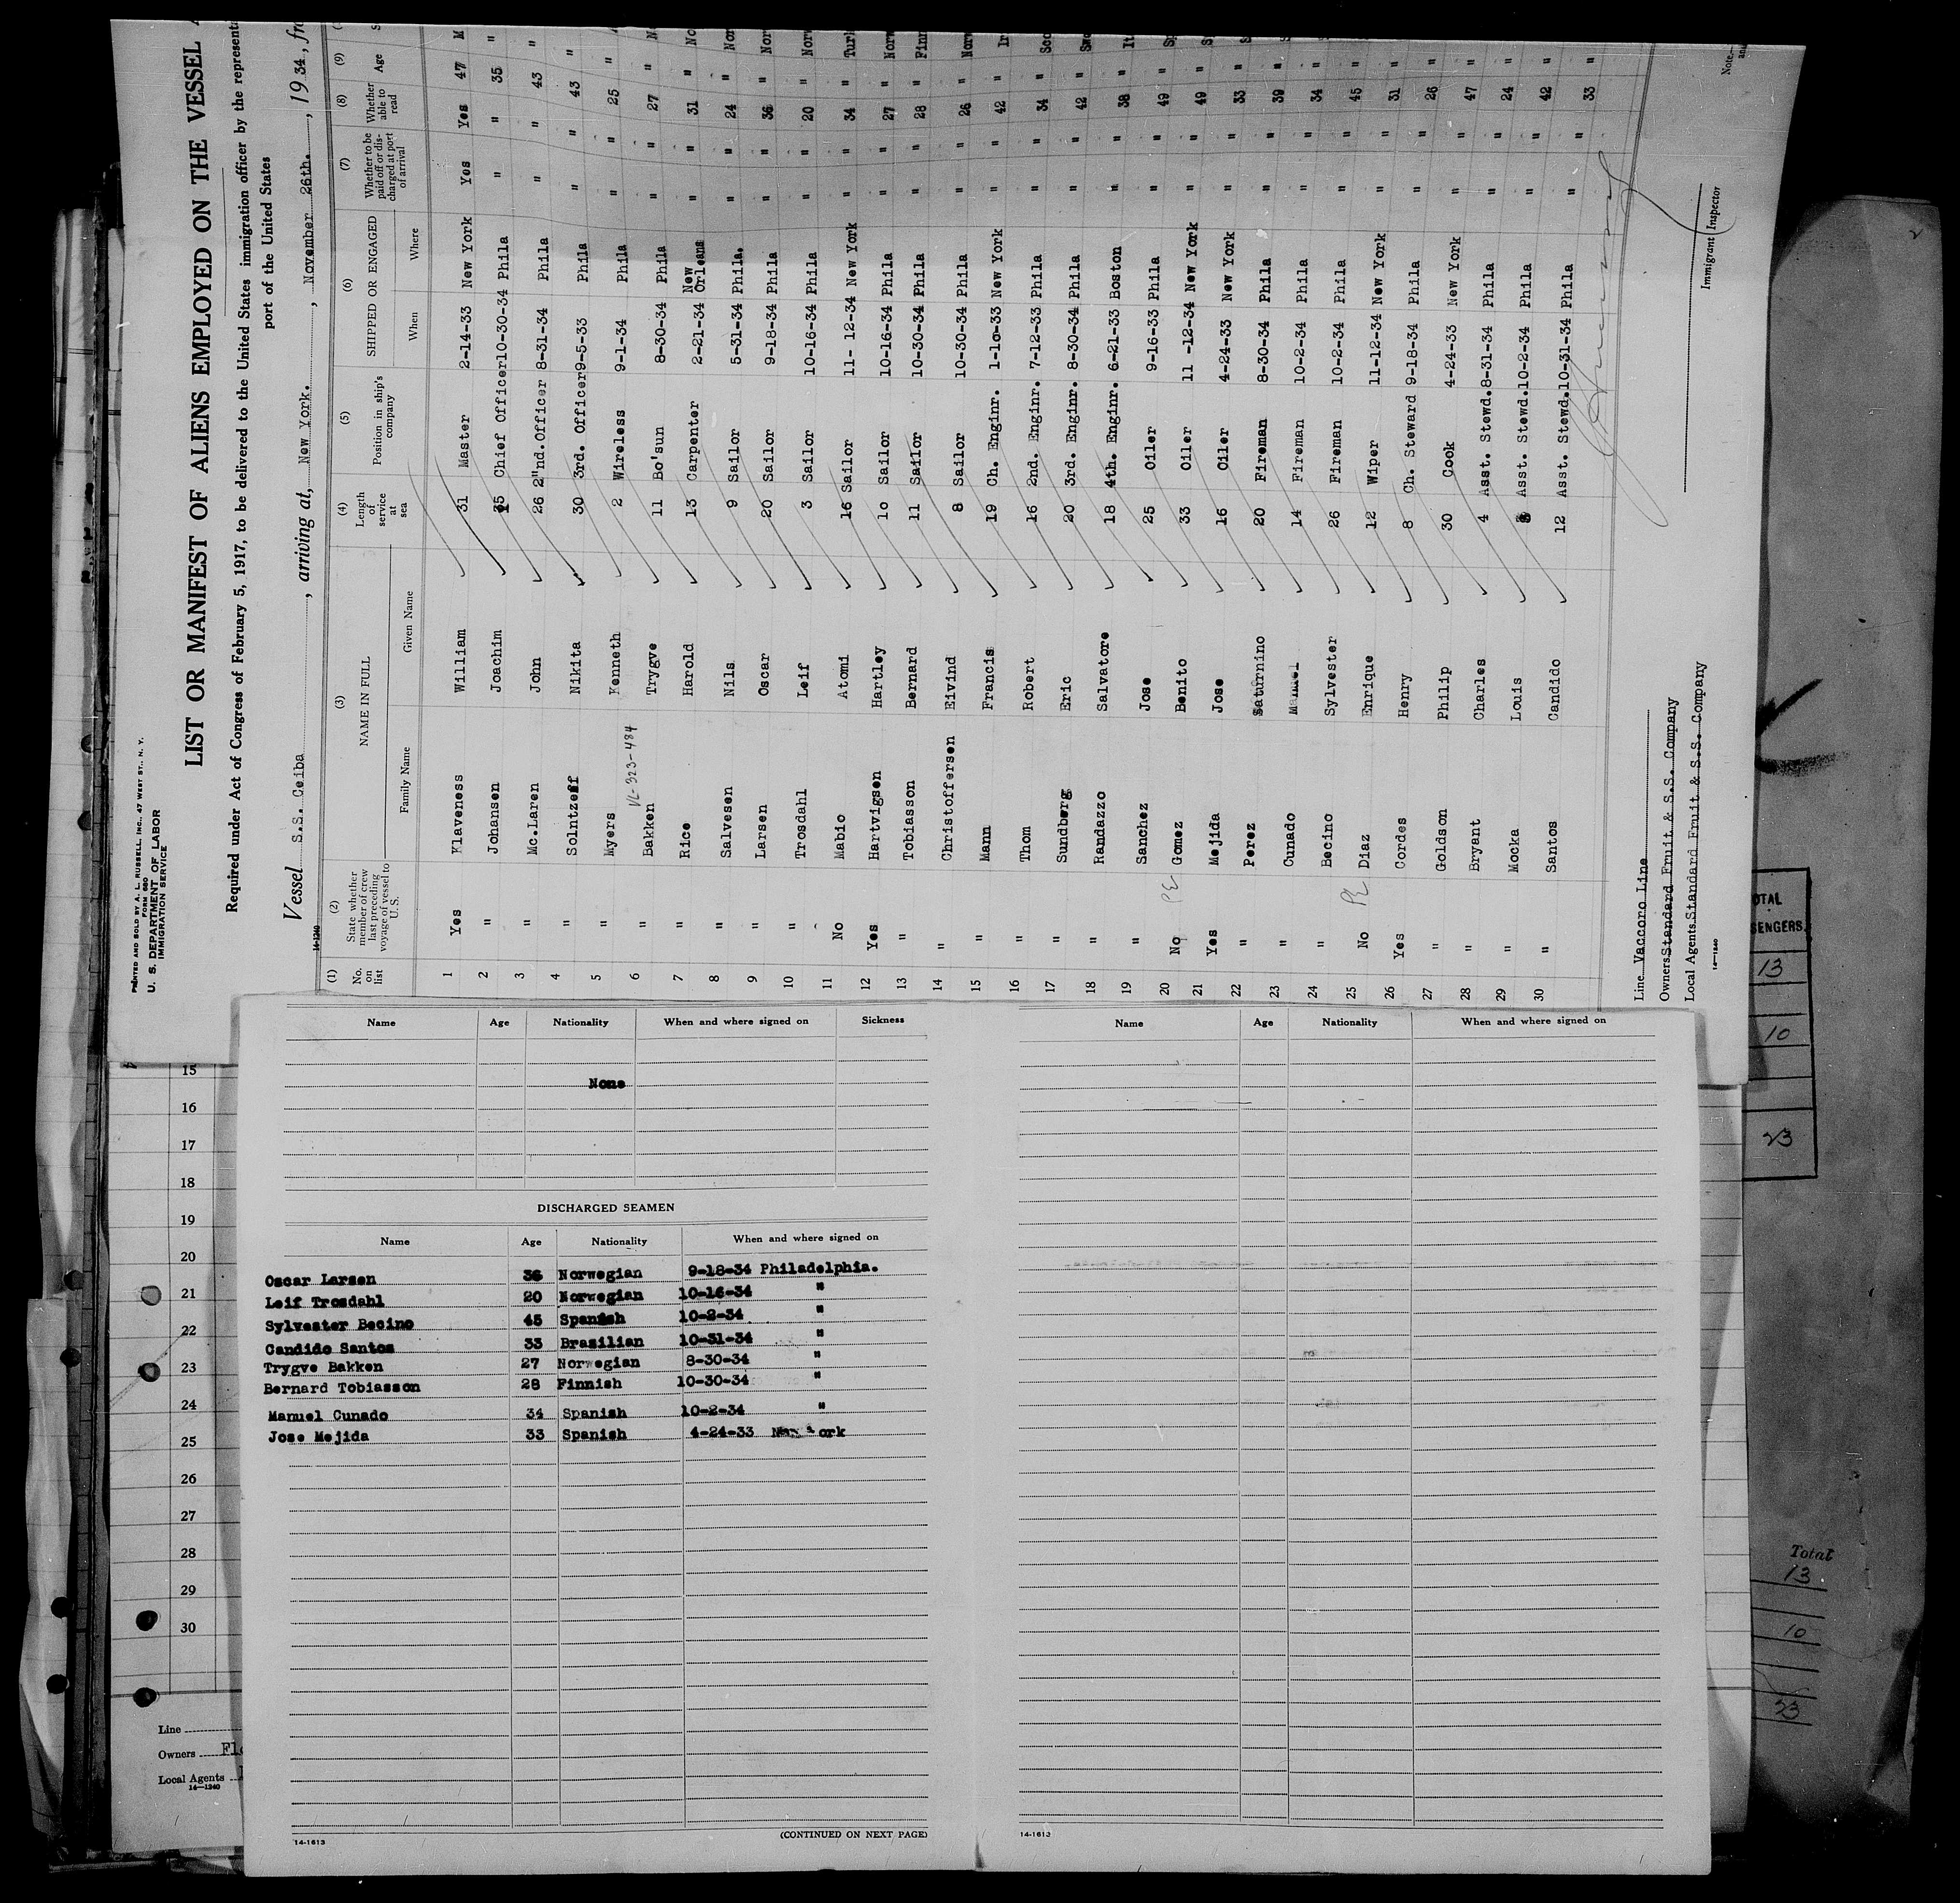 PRINTED AND SOLD BY A. L. RUSSELL, INC., 47 WEST ST., N. Y.
FORM 680
U. S. DEPARTMENT OF LABOR
IMMIGRATION SERVICE
LIST OR MANIFEST OF ALIENS EMPLOYED ON THE VESSEL
Required under Act of Congress of February 5, 1917, to be delivered to the United States immigration officer by the
port of the United States
Vessel S.S. Ceiba, arriving at, New York., November 26th., 1934,
14-1240
(1) (2) (3) (4) (5) (6) (7) (8) (9)
No. on list
State whether member of crew last preceding voyage of vessel to U. S.
NAME IN FULL
Family Name Given Name
Length of service at sea
Position in ship's company
SHIPPED OR ENGAGED
When Where
Whether to be paid off or discharged at port of arrival
Whether able to read
Age
1 Yes Klaveness William 31 Master 2-14-33 New York Yes Yes 47
2 " Johansen Joachim Chief Officer 10-30-34 Phila " " 35
3 " Mc.Laren John 26 2"nd.Officer 8-31-34 Phila " " 43
4 " Solntzeff Nikita 30 3rd. Officer 9-5-33 Phila " " 43
5 " Myers Kenneth 2 Wireless 9-1-34 Phila " " 25
VL-323-484
6 " Bakken Trygve 11 Bo'sun 8-30-34 Phila " " 27
7 " Rice Harold 13 Carpenter 2-21-34 New Orleans " " 31
8 " Salvesen Nils 9 Sailor 5-31-34 Phila. " " 24
9 " Larsen Oscar 20 Sailor 9-18-34 Phila " " 36
10 " Trosdahl Leif 3 Sailor 10-16-34 Phila " " 20
11 No Mabio Atomi 16 Sailor 11- 12-34 New York " " 34
12 Yes Hartvigsen Hartley 10 Sailor 10-16-34 Phila " " 27
13 " Tobiasson Bernard 11 Sailor 10-30-34 Phila " " 28
14 " Christoffersen Eivind 8 Sailor 10-30-34 Phila " " 26
15 " Mann Francis 19 Ch. Enginr. 1-10-33 New York " " 42
16 " Thom Robert 16 2nd. Enginr. 7-12-33 Phila " " 34
17 " Sundberg Eric 20 3rd. Enginr. 8-30-34 Phila " " 42
18 " Randazzo Salvatore 18 4th. Enginr. 6-21-33 Boston " " 38
19 " Sanchez Jose 25 Oiler 9-16-33 Phila " " 49
20 No Gomez Benito 33 Oiler 11 -12-34 New York " " 49
21 Yes Mejida Jose 16 Oiler 4-24-33 New York " " 33
22 " Perez Saturnino 20 Fireman 8-30-34 Phila " " 39
23 " Cunado Manuel 14 Fireman 10-2-34 Phila " " 34
24 " Becino Sylvester 26 Fireman 10-2-34 Phila " " 45
25 No Diaz Enrique 12 Wiper 11-12-34 New York " " 31
26 Yes Cordes Henry 8 Ch. Steward 9-18-34 Phila " " 26
27 " Goldson Philip 30 Cook 4-24-33 New York " " 47
28 " Bryant Charles 4 Asst. Stewd. 8-31-34 Phila " " 24
29 " Mocka Louis Asst. Stewd. 10-2-34 Phila " " 42
30 " Santos Candido 12 Asst. Stewd. 10-31-34 Phila " " 33
Line Vaccoro Line
Owners Standard Fruit & S.S. Company
Local Agents Standard Fruit & S.S. Company
14-1240
Immigrant Inspector
Note.
Name Age Nationality When and where signed on Sickness
None
DISCHARGED SEAMEN
Name Age Nationality When and where signed on
Oscar Larsen 36 Norwegian 9-18-34 Philadelphia.
Leif Trosdahl 20 Norwegian 10-16-34 "
Sylvester Becino 45 Spanish 10-2-34 "
Candido Santos 33 Brasilian 10-31-34 "
Trygve Bakken 27 Norwegian 8-30-34 "
Bernard Tobiasson 28 Finnish 10-30-34 "
Manuel Cunado 34 Spanish 10-2-34 "
Jose Mejida 33 Spanish 4-24-33 New York
14-1613
(CONTINUED ON NEXT PAGE)
Name Age Nationality When and where signed on
14-1613
15
16
17
18
19
20
21
22
23
24
25
26
27
28
29
30
Line
Owners
Local Agents
14-1240
13
10
23
Total
13
10
23